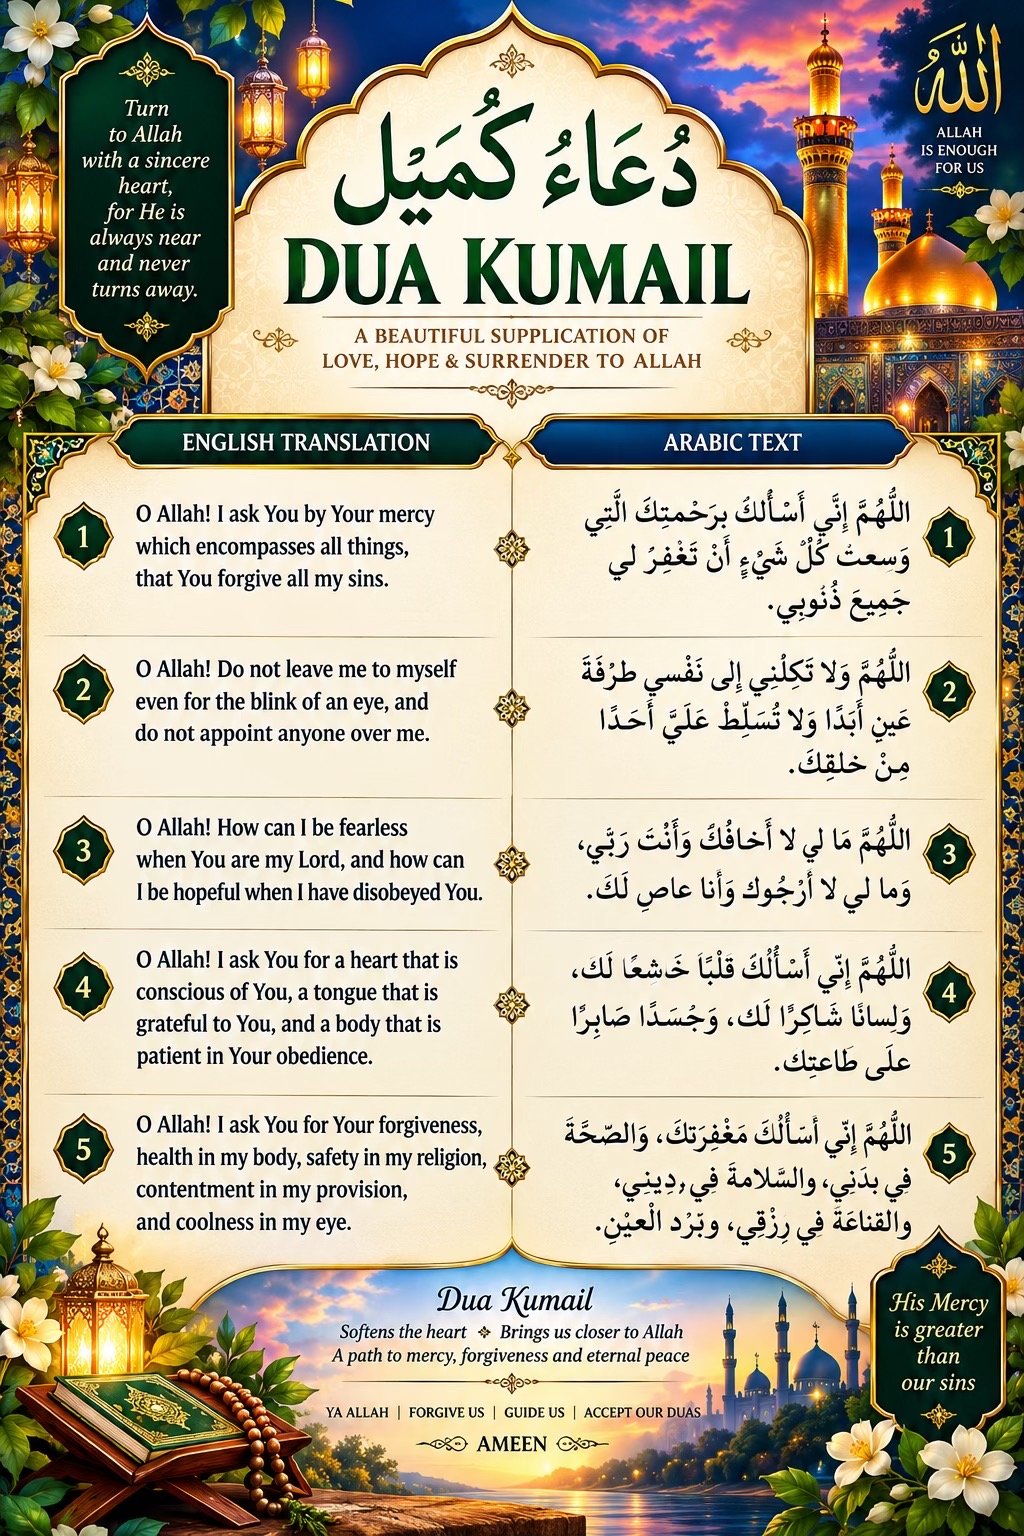 Turn
to Allah
with a sincere
heart,
for He is
always near
and never
turns away.
دُعَاءُ كُمَيْل
DUA KUMAIL
A BEAUTIFUL SUPPLICATION OF
LOVE, HOPE & SURRENDER TO ALLAH
الله
ALLAH
IS ENOUGH
FOR US
ENGLISH TRANSLATION
ARABIC TEXT
1
O Allah! I ask You by Your mercy
which encompasses all things,
that You forgive all my sins.
1
اللَّهُمَّ إِنَّي أَسْأَلُكَ بِرَحْمتِكَ الَّتِي
وَسِعتْ كُلَّ شَيْءٍ أَنْ تَغْفِرُ لي
جَمِيعَ ذُنُوبِي.
2
O Allah! Do not leave me to myself
even for the blink of an eye, and
do not appoint anyone over me.
2
اللَّهُمَّ وَلا تَكِلْنِي إِلى نَفْسي طرْفَةَ
عَينِ أَبَدًا وَلا تُسَلِّطْ عَلَيَّ أَحَدًا
مِنْ خلقِكَ.
3
O Allah! How can I be fearless
when You are my Lord, and how can
I be hopeful when I have disobeyed You.
3
اللَّهُمَّ مَا لي لا أَخافُكَ وَأَنْتَ رَبَّي،
وَما لي لا أرْجُوك وَأَنا عاصِ لَكَ.
4
O Allah! I ask You for a heart that is
conscious of You, a tongue that is
grateful to You, and a body that is
patient in Your obedience.
4
اللَّهُمَّ إِنّي أَسْأَلُكَ قَلْبًا خَاشِعًا لَكَ،
وَلِسانًا شَاكِرًا لَك، وَجُسَدًا صَابِرًا
علَى طَاعتِك.
5
O Allah! I ask You for Your forgiveness,
health in my body, safety in my religion,
contentment in my provision,
and coolness in my eye.
5
اللَّهُمَّ إِنّي أَسَأَلُكَ مَغْفِرَتكَ، وَالصّحَّةَ
فِي بدَنِي، والسَّلامةَ فِي دِينِي،
والقناعَةَ فِي رِزْقِي، وبَرْد الْعيْنِ.
Dua Kumail
Softens the heart Brings us closer to Allah
A path to mercy, forgiveness and eternal peace
YA ALLAH | FORGIVE US | GUIDE US | ACCEPT OUR DUAS
AMEEN
His Mercy
is greater
than
our sins